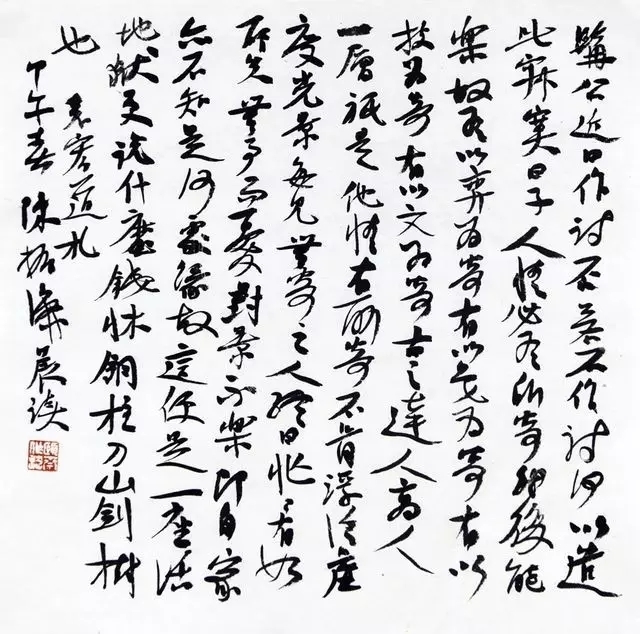 髯公近日作詩否若不作詩何以造
此寂寞日子人情必有所寄然後能
樂故有以弈為寄有以色為寄有以
技為寄有以文為寄古之達人高人
一層祇是他情有所寄不肯浮泛虛
度光景每見無寄之人終日忙忙有如
所失無事而憂對景不樂即自家
亦不知是何處緣故這便是一座活
地獄更說什麼鐵床銅柱刀山劍樹
也 袁宏道札
甲午春 陳海晨讀